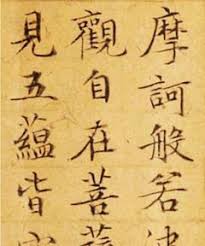 摩訶般若波
觀自在菩薩
見五蘊皆